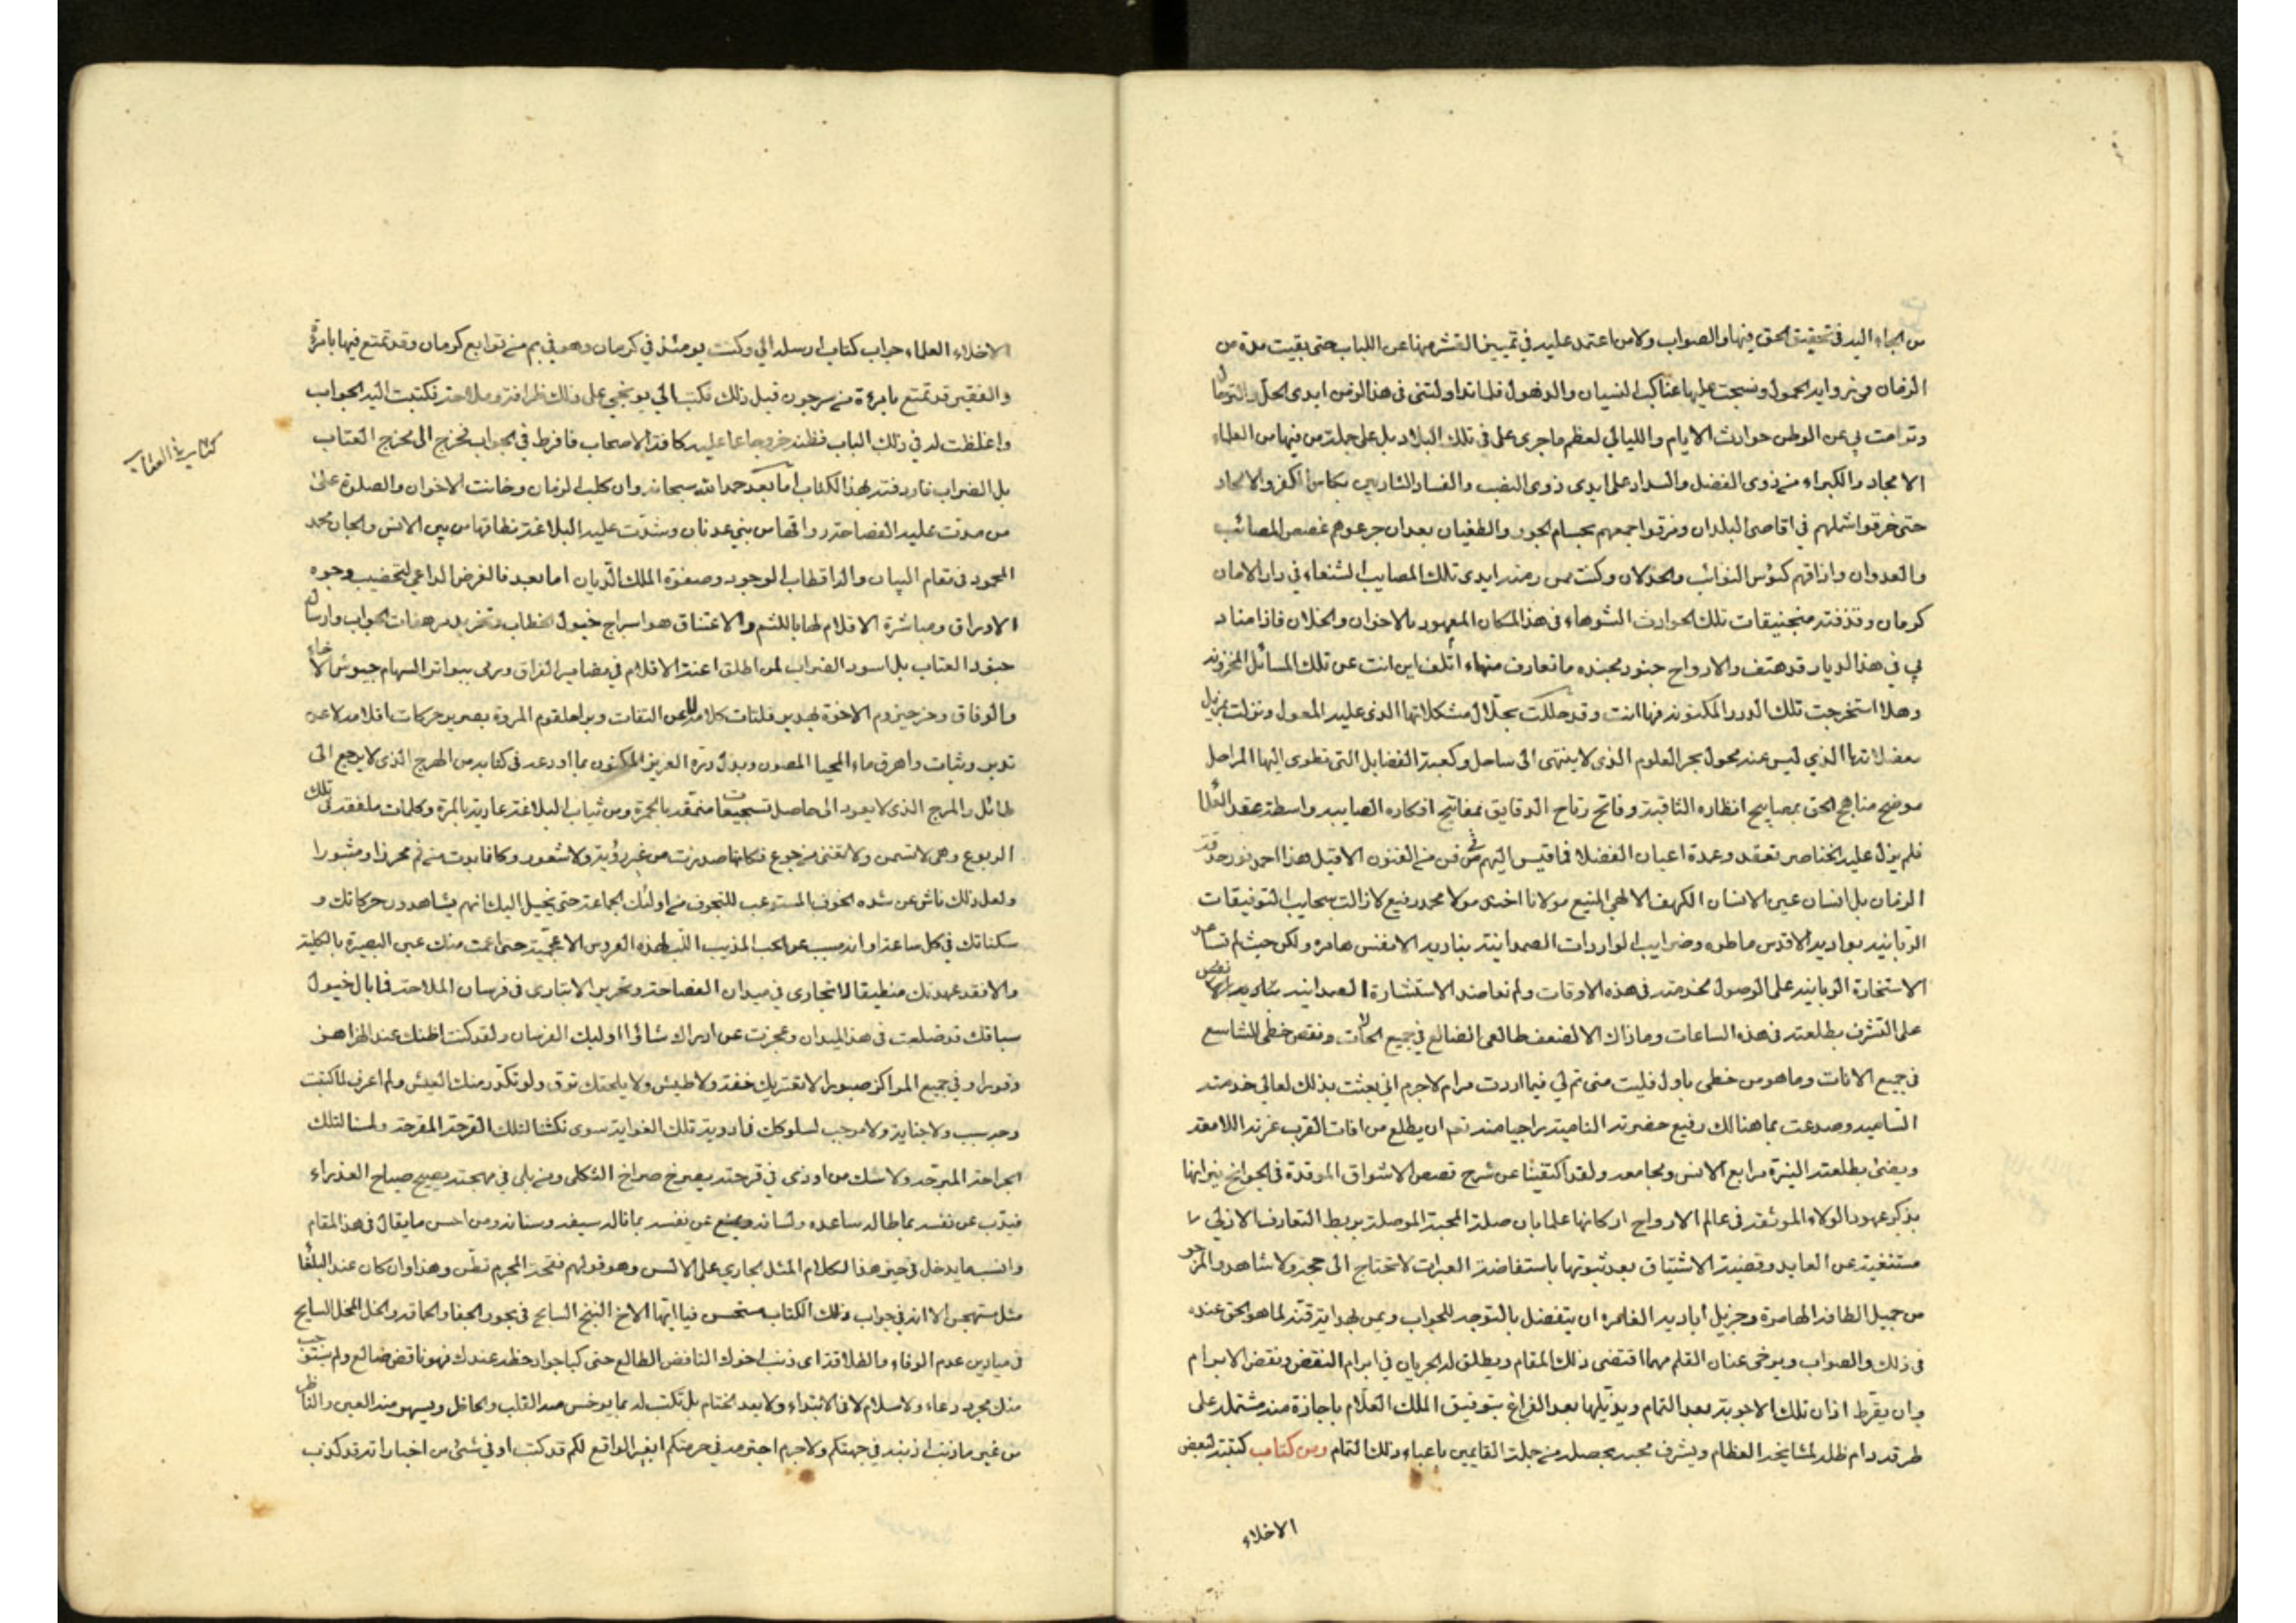 من الجاء اليه في تحقيق الحق فيها والصواب ولا من اعتمد عليه في تمييز القشر منها عن اللباب حتى بقيت مدة من
الزمان في زوايه الخمول ونسجت عليها عناكب النسيان والذهول فلما تداولتني في هذا الزمن ايدى الحل والترحال
وترامت بي عن الوطن حوادث الايام والليالي لعظم ما جرى على في تلك البلاد بل على جلة من فيها من العلماء
الامجاد والكبراء من ذوى الفضل والسداد على ايدى ذوى النصب والفساد الشاربين بكاس الكفر والالحاد
حتى فرقوا شملهم في اقاصى البلدان ومزقوا جمعهم بحسام الجور والطغيان بعد ان جرعوهم غصص المصائب
والعدوان واذاقهم كؤس النوائب والخذلان وكنت ممن رمته ايدى تلك المصايب الشنعاء في دار الامان
كرمان وقذفته منجنيقات تلك الحوادث الشوهاء في هذا المكان المعهود بالاخوان والخلان فاذا مناد
بي في هذا الديار قد هتف والارواح جنود مجنده ما تعارف منها ائتلف اين انت عن تلك المسائل المخزونه
وهلا استخرجت تلك الدرر المكنونه فها انت وقد حللت بحلال مشكلاتها الذى عليه المعول ونزلت بمزيل
معضلاتها الذي ليس عنه محول بحر العلوم الذى لا ينتهى الى ساحل وكعبة الفضايل التى تطوى اليها المراحل
موضح مناهج الحق بمصابيح انظاره الثاقبة وفاتح رتاج الدقايق بمفاتيح افكاره الصايبه واسطة عقد العلماء
فلم يزل عليه الخناصر تعقد وعدة اعيان الفضلا فما قيس اليهم في فن من الفنون الا قيل هذا احمد نور حدقة
الزمان بل انسان عين الانسان الكهف الالهي المنيع مولانا اخوى مولا محمد رفيع لا زالت سحايب التوفيقات
الربانيه بواديه الاقدس ماطره وضرايب الواردات الصمدانية بناديه الانفس هامره ولكن حيث لم تساعد
الاستخارة الربانيه على الوصول لخدمته في هذه الاوقات ولم تعاضد الاستشارة الصمدانيه
على التشرف بطلعته في هذه الساعات وما ذاك الا لضعف طالعى الضالع في جميع الحالات ونقص حظي الشاسع
في جميع الانات وما هو من حظى باول فليت متى تم لي فيما اردت مرام لا جرم اني بعثت بذلك لعالي خدمته
الساميه وصدعت بما هنالك رفيع حضرته الناميه راجيا منه ان يطلع من افاق القرب غرته اللامعه
ويضئ بطلعته النيرة مرابع الانس ومجامعه ولقد اكتفينا عن شرح قصص الاشواق الموقدة في الجوانح نيرانها
بذكر عهود الولاء الموثقه في عالم الارواح اركانها علما بان صلة المحبة الموصلة بربط التعارف الازلي
مستغنية عن العايد وقضية الاشتياق بعد ثبوتها باستفاضة العبرات لا تحتاج الى حجة ولا شاهد والمرجو
من جميل الطافه الهامرة وجزيل اياديه الغامره ان يتفضل بالتوجه للجواب ويمن بهدايته لما هو الحق عنده
في ذلك والصواب ويرخى عنان القلم مهما اقتضى ذلك المقام ويطلق له الجريان في ابرام النقض ونقض الابرام
وان يقرط اذان تلك الاجوبة بعد التمام ويذيلها بعد الفراغ بتوفيق الملك العلام باجازة منه مشتملة على
طرقه دام ظله لمشايخه العظام ويشرف محبه بجعله من جملة القايمين باعباء ذلك التمام ومن كتاب كتبته لبعض
الاخلاء
الاخلاء العلماء جواب كتاب ارسله الي وكنت يومئذ في كرمان وهو في بم من توابع كرمان وقد تمتع فيها بامرأة
والفقير قد تمتع بامرءة من سرجون قبل ذلك فكتب الي يوبخني على ذلك ظرافة وملاحة فكتبت اليه الجواب
واغلظت له في ذلك الباب فظنه خروجا عما عليه كافة الاصحاب فافرط في الجواب فخرج الى مخرج العتاب
بل الضراب فاردفته بهذا الكتاب اما بعد حمد الله سبحانه وان كلب الزمان وخانت الاخوان والصلوة على
من مدت عليه الفصاحة رواقها من بني عدنان وشدت عليه البلاغة نطاقها من بين الانس والجان محمد
المحمود في مقام البيان واله اقطاب الوجود وصفوة الملك الديان اما بعد فالغرض الداعي لتخضيب وجوه
الاوراق ومباشرة الاقلام لها باللثم والاعتناق هو اسراج خيول الخطاب وتجريد مرهفات الجواب وارسال
جنود العتاب بل اسود الضراب لمن اطلق اعنة الاقلام في مضامير الفراق ورمى ببواتر السهام جيوش الاخاء
والوفاق وحز حيزوم الاخوة بهدير فلتات كلامه عن الثقات وبرا حلقوم المروة بصرير حركات اقلامه لا عن
تدبر وثبات واهرق ماء المحيا المصون وبذل دره العزيز المكنون بما اودعه في كتابه من الهرج الذى لا يرجع الى
طائل والمرج الذى لا يعود الى حاصل تسجيعات منمقه بالحمرة ومن ثياب البلاغة عارية بالمرة وكلمات ملفقه في تلك
الربوع وهى لا تسمن ولا تغنى من جوع فكانها صدرت من غير رؤية ولا شعور وكانما بدت من فم محرذا ومثبورا
ولعل ذلك ناش عن شده الخوف المستوعب للتجوف من اولئك الجماعة حتى يخيل اليك انهم يشاهدون حركاتك و
سكناتك في كل ساعة او انه مسبب عن الحب المذيب اللب لهذه العروس الاعجمية حتى اعمت منك عين البصيرة بالكلية
والا فقد عهدتك منطيقا لا تجارى في ميدان الفصاحة ونحرير الا تبارى في فرسان الملاحة فما بال خيول
سباقك قد ضلعت في هذا الميدان وعجزت عن ادراك شاؤ اوليك الفرسان ولقد كنت اظنك عند الهزاهز
وقورا وفي جميع المراكز صبورا لا تعتريك خفة ولا طيش ولا يلحقك نزق ولو تكدر منك العيش ولم اعرف لما كتبت
وجه سبب ولا جناية ولا موجب لسلوكك في اودية تلك الغواية سوى نكثنا لتلك القرحة المقرحة ولمسنا لتلك
الجراحة المبرحة ولا شك من اوذى في قرحته يصرخ صراخ الثكلى ومن بلى في مهجته يصيح صياح العذراء
فيذب عن نفسه بما طاله ساعده ولسانه ويمنع عن نفسه بما ناله سيفه وسنانه ومن احسن ما يقال في هذا المقام
وانسب ما يدخل في حيز هذا الكلام المثل الجاري على الالسن وهو قولهم وهذا وان كان عند البلغاء
مثل مستهجن الا انه في جواب ذلك الكتاب مستحسن فيا ايها الاخ السابح في بحور الجفا والحماقه والخل المخل السايح
في ميادين عدم الوفاء والطلاقة اى ذنب اخوك الناقص الطالع حتى كبا جواد حظه عندك فهو ناقص ضائع ولم يستوجب
منك مجرد دعاء ولا سلام لا في الابتداء ولا بعد الختام بل تكتب له بما يوخش منه القلب والخاطر ويسهر منه العين والناظر
من غير ما ذنب اذنبه في جهتكم ولا جرم اجترمه في حرمتكم ابغير الواقع لكم قد كتب او في شئ من اخباراته قد كذب
كتاب في العتاب